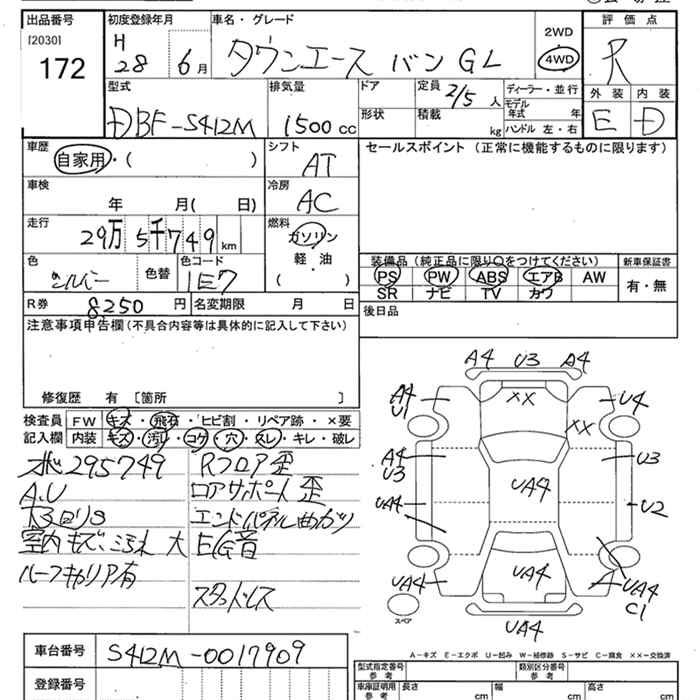 出品番号 初度登録年月 車名・グレード 2WD 評価点
[2030] H
172 28 6月 タウンエース バン GL 4WD R
型式 排気量 ドア 定員 2/5人 ディーラー・並行 外装 内装
DBF-S412M 1500cc 形状 積載 kg モデル年式 年 E D
ハンドル 左・右
車歴 シフト セールスポイント (正常に機能するものに限ります)
自家用・( ) AT
車検 冷房
年 月( 日) AC
走行 燃料
29万5千749km ガソリン
色 色コード 軽・油 装備品(純正品に限り○をつけてください) 新車保証書
シルバー 色替 1E7 ( ) PS PW ABS エアB AW 有・無
SR ナビ TV カワ
R券 8250円 名変期限 月 日 後日品
注意事項申告欄(不具合内容等は具体的に記入して下さい)
修復歴 有 [箇所 ]
検査員 FW キズ・飛石・ヒビ割・リペア跡・×要
記入欄 内装 キズ・汚レ・コゲ・穴・スレ・キレ・破レ
295749 Rフロア歪
A.U ロアサポート歪
エンドパネル曲ガリ
室内 大 E/G音
ルーフキャリア有
スタットレス
A4 U3 A4
A4 U1 XX U4
XX
A4 U3 U3
UA4 UA4 U2
UA4 UA4 UA4 C1
スペア UA4
A-キズ E-エクボ U-凹み W-補修跡 S-サビ C-腐食 ××-交換済
車台番号 S412M-0017909
登録番号
型式指定番号 参考 類別区分番号 参考
車庫証明用 参考 長さ cm 幅 cm 高さ cm